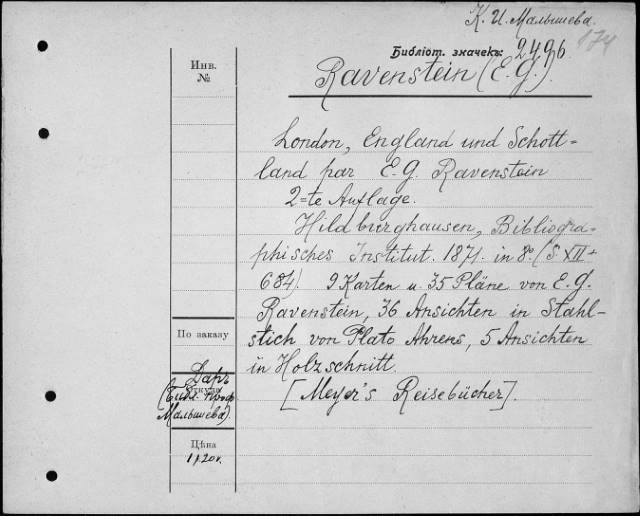 К. И. Малышева.
174
Библіот. значекъ: 2496
Инв.
№
Ravenstein (E. G.).
London, England und Schott-
land par E. G. Ravenstein
2=te Auflage.
Hildburghausen, Bibliogra-
phisches Institut. 1871. in 8º (S. XII +
684). 9 Karten u. 35 Pläne von E. G.
Ravenstein, 36 Ansichten in Stahl-
stich von Plato Ahrens, 5 Ansichten
in Holzschnitt.
[Meyer's Reisebücher].
По заказу
Даръ
Откуда
(Библ. проф.
Малышева).
Цѣна
1 р. 20 к.